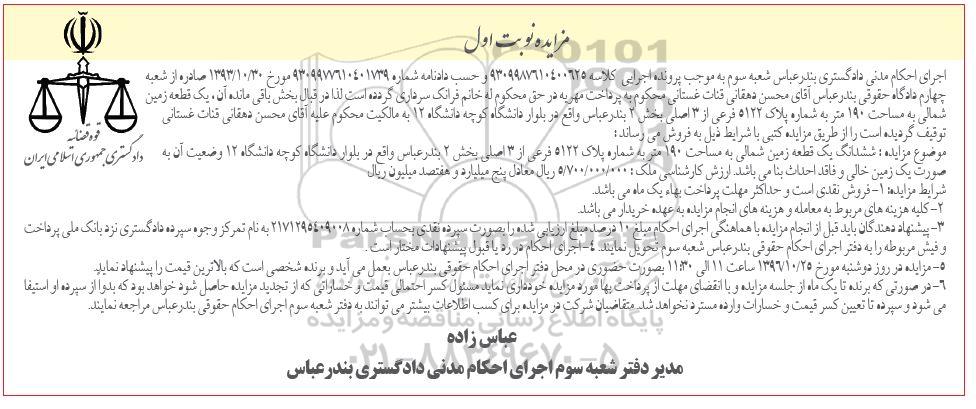 مزایده نوبت اول
قوه قضائیه
دادگستری جمهوری اسلامی ایران
اجرای احکام مدنی دادگستری بندرعباس شعبه سوم به موجب پرونده اجرایی کلاسه ۹۳۰۹۹۸۷۶۱۰۴۰۰۶۲۵ و حسب دادنامه شماره ۹۳۰۹۹۷۷۶۱۰۴۰۱۷۳۹ مورخ ۱۳۹۳/۱۰/۳۰ صادره از شعبه
چهارم دادگاه حقوقی بندرعباس آقای محسن دهقانی قنات غستانی محکوم به پرداخت مهریه در حق محکوم له خانم فرانک سرداری گردده است لذا در قبال بخش باقی مانده آن ، یک قطعه زمین
شمالی به مساحت ۱۹۰ متر به شماره پلاک ۵۱۲۲ فرعی از ۳ اصلی بخش ۲ بندرعباس واقع در بلوار دانشگاه کوچه دانشگاه ۱۲ به مالکیت محکوم علیه آقای محسن دهقانی قنات غستانی
توقیف گردیده است را از طریق مزایده کتبی با شرایط ذیل به فروش می رساند :
موضوع مزایده : ششدانگ یک قطعه زمین شمالی به مساحت ۱۹۰ متر به شماره پلاک ۵۱۲۲ فرعی از ۳ اصلی بخش ۲ بندرعباس واقع در بلوار دانشگاه کوچه دانشگاه ۱۲ وضعیت آن به
صورت یک زمین خالی و فاقد احداث بنا می باشد. ارزش کارشناسی ملک : ۵/۷۰۰/۰۰۰/۰۰۰ ریال معادل پنج میلیارد و هفتصد میلیون ریال
شرایط مزایده: ۱- فروش نقدی است و حداکثر مهلت پرداخت بهاء یک ماه می باشد.
۲- کلیه هزینه های مربوط به معامله و هزینه های انجام مزایده به عهده خریدار می باشد.
۳- پیشنهاد دهندگان باید قبل از انجام مزایده با هماهنگی اجرای احکام مبلغ ۱۰ درصد مبلغ ارزیابی شده را بصورت سپرده نقدی بحساب شماره ۲۱۷۱۲۹۵۴۰۹۰۰۸ به نام تمرکز وجوه سپرده دادگستری نزد بانک ملی پرداخت
و فیش مربوطه را به دفتر اجرای احکام حقوقی بندرعباس شعبه سوم تحویل نمایند. ۴- اجرای احکام در رد یا قبول پیشنهادات مختار است .
۵- مزایده در روز دوشنبه مورخ ۱۳۹۶/۱۰/۲۵ ساعت ۱۱ الی ۱۱:۳۰ بصورت حضوری در محل دفتر اجرای احکام حقوقی بندرعباس بعمل می آید و برنده شخصی است که بالاترین قیمت را پیشنهاد نماید.
۶- در صورتی که برنده تا یک ماه از جلسه مزایده و با انقضای مهلت از پرداخت بها مورد مزایده خودداری نماید مسئول کسر احتمالی قیمت و خساراتی که از تجدید مزایده حاصل شود خواهد بود که بدوا از سپرده او استیفا
می شود و سپرده تا تعیین کسر قیمت و خسارات وارده مسترد نخواهد شد. متقاضیان شرکت در مزایده برای کسب اطلاعات بیشتر می توانند به دفتر شعبه سوم اجرای احکام حقوقی بندرعباس مراجعه نمایند.
پایگاه اطلاع رسانی مناقصه و مزایده
عباس زاده
۰۲۱-۸۸۳۴۹۶۷۰-۵
مدیر دفتر شعبه سوم اجرای احکام مدنی دادگستری بندرعباس